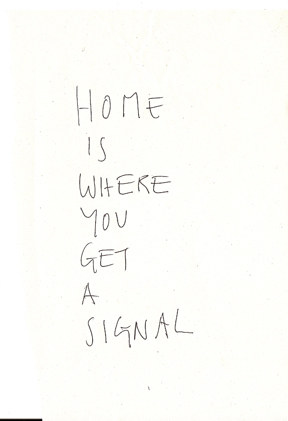 HOME
IS
WHERE
YOU
GET
A
SIGNAL